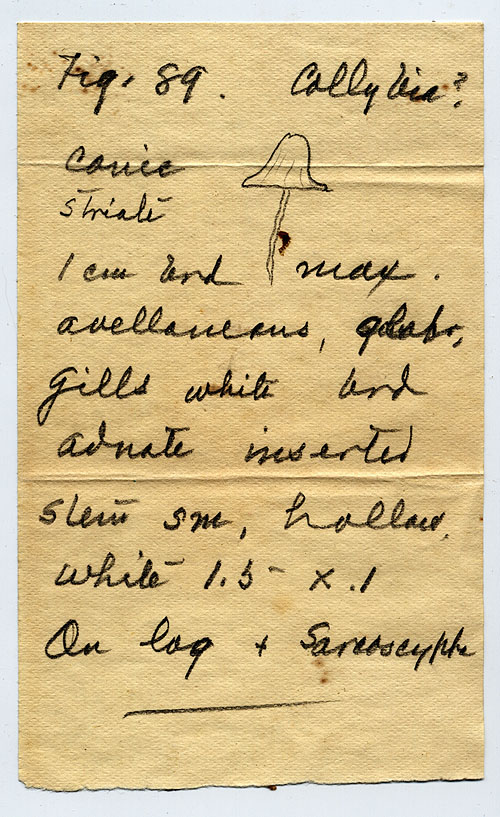 Fig. 89. Collybia?
conic
striate
1 cm brd max.
avellaneous, glabr,
Gills white brd
adnate inserted
Stem sm, hollow,
white 1.5 x .1
On log + Sarcoscypha